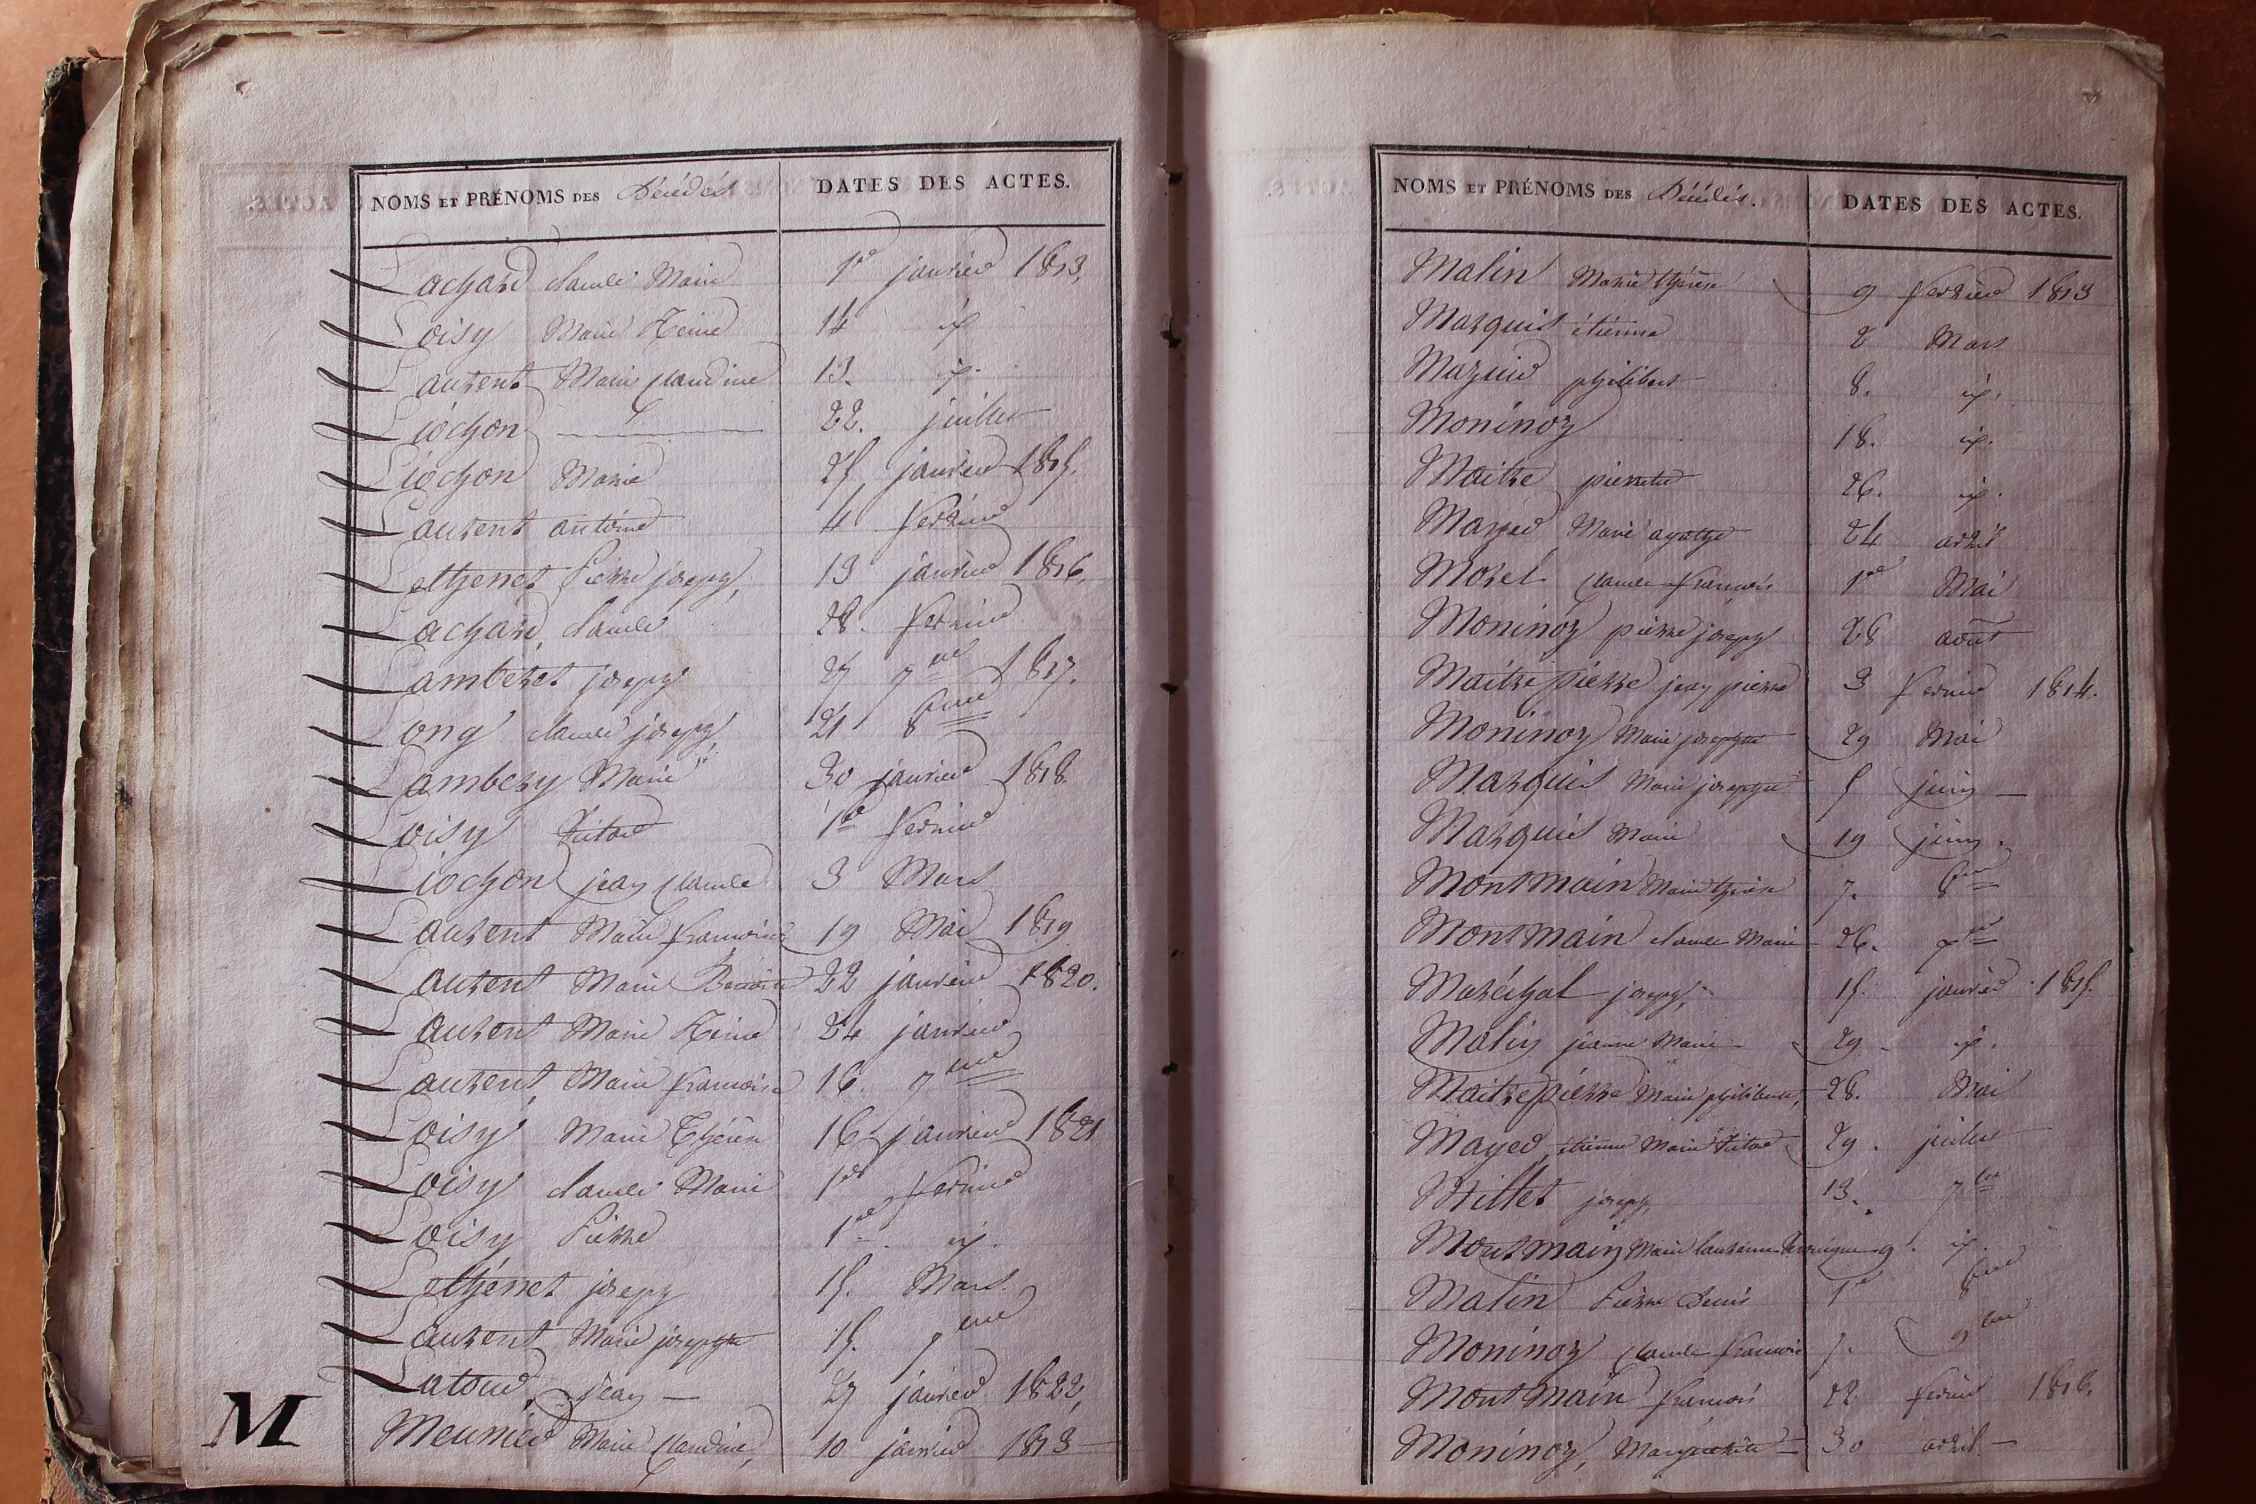 NOMS ET PRÉNOMS DES Décédés DATES DES ACTES.
Lochard claude Marie 1er janvier 1813,
Loisy Marie Reine 14 id.
Laurent Marie claudine 13. id.
Liochon 22. juillet
Liochon Marie 25 janvier 1815.
Laurent antoine 4 fevrier
Lethenet Pierre joseph, 13 janvier 1816,
Lachard, claude 28. fevrier
Lamberet joseph 27 1817.
Long claude joseph 21 8bre
Lambery Marie 30 janvier 1818.
Loisy Victor 1er fevrier
Liochon jean claude 3 Mars
Laurent Marie francoise 19 Mai 1819
Laurent Marie Benoite 22 janvier 1820.
Laurent Marie Reine 24 janvier
Laurent, Marie francoise 16. 9bre
Loisy Marie Thérèse 16 janvier 1821
Loisy claude Marie 1er fevrier
Loisy Pierre 1er id.
Lethenet joseph 15. Mars.
Laurent Marie josephte 15.
Latour, jean — 27 janvier 1822,
M Meunier Marie claudine, 10 janvier 1813 —
NOMS ET PRÉNOMS DES Décédés. DATES DES ACTES.
Malin Marie thérèse 9 fevrier 1813
Marquis étienne 2 Mars
Mazuir philibert 8. id.
Moninoz 18. id.
Maitre pierrette 26. id.
Marie agathe 24 avril
Morel claude françois 1er Mai
Moninoz pierre joseph 28 août
Maitrepierre jean pierre 3 fevrier 1814.
Moninoz Marie josephte 29 Mai
Marquis Marie josephte 5 juin —
Marquis Marie 19 juin.
Montmain Marie thérèse 7. 8bre
Montmain claude Marie 26.
Maréchal joseph, 15. janvier 1815.
Malin jeanne Marie 29 id.
Maitrepierre Marie philiberte, 28. Mai
Mayer, étienne Marie Victor 29. juillet
Millet joseph, 13. 7bre
Montmain Marie laurence Véronique id.
Malin Pierre Denis 1er 8bre
Moninoz claude francois 9bre
Montmain francois 22 fevrier 1816.
Moninoz, Marguerite — 30 avril —